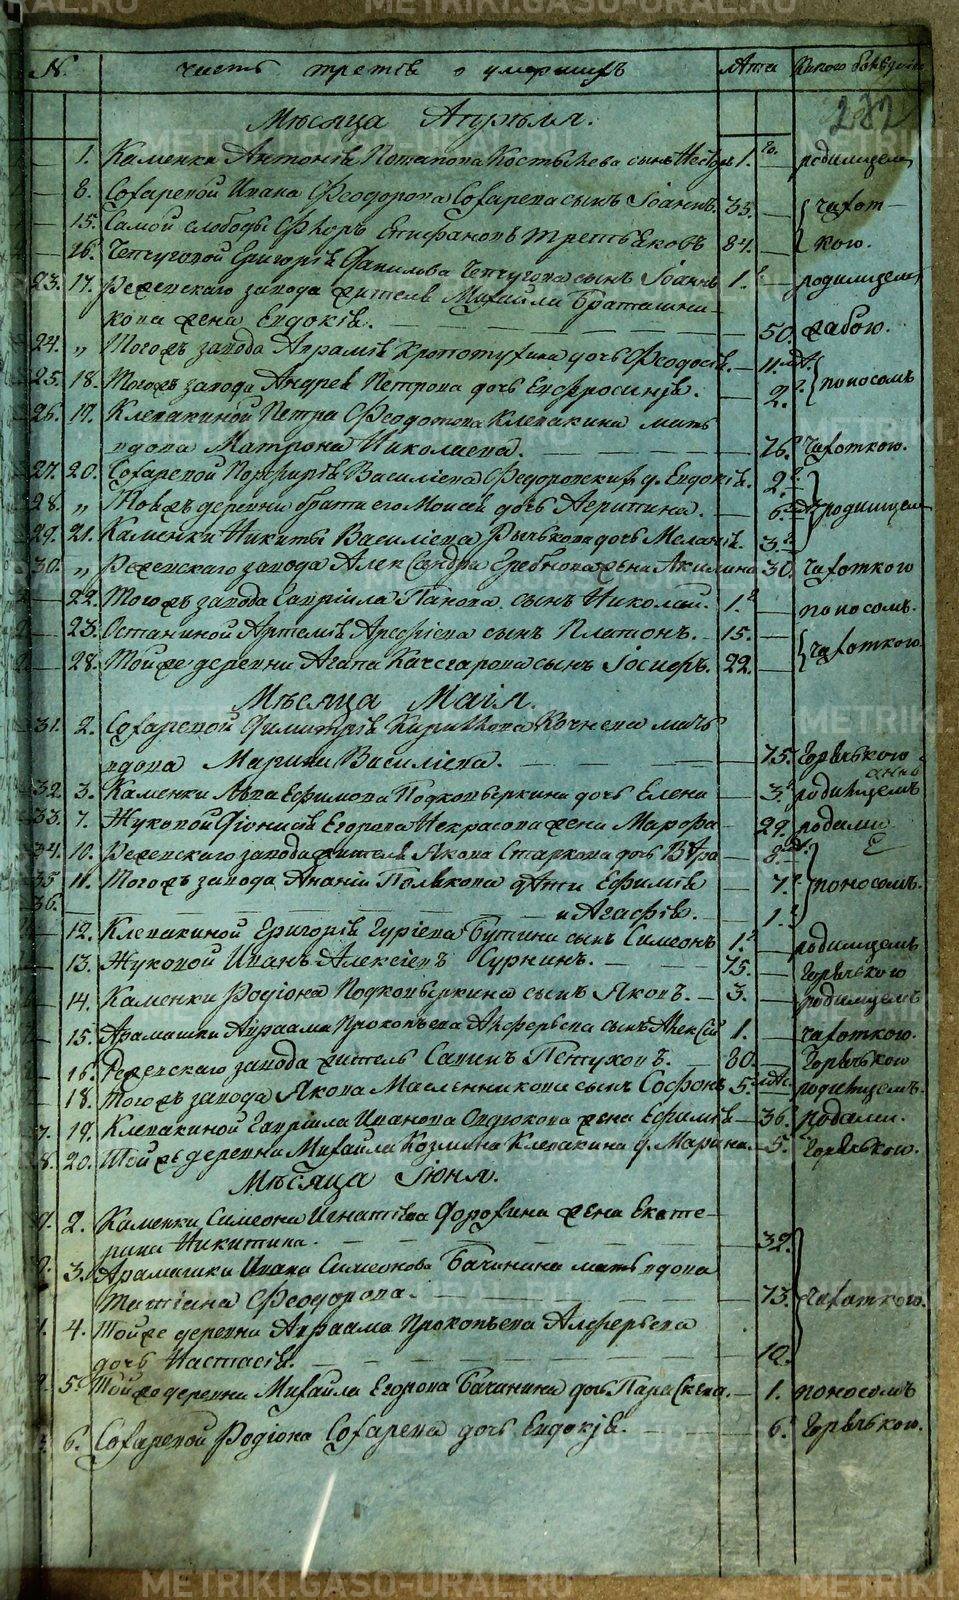 N. часть третія о умершихъ Лѣта Какого болѣзнію
282
Мѣсяца Апрѣля.
1. Каменки Антонія Потапова Костылева сынъ Несторъ 1. родимцемъ
8. Сохаревой Ивана Феодорова Сохарева сынъ Іоаннъ. 33. чахот-
15. Самой слободы Флоръ Епифановъ Третьяковъ 84. кою.
16. Чепчуговой Григорія Данилова Чепчугова сынъ Іоаннъ 1. родимцемъ
23. 17. Режевскаго завода жителя Михайла Браташни-
кова жена Евдокія. 50. жабою.
24. „ Тогожъ завода Авраамія Кропотухина дочь Феодосія. 11.
25. 18. Тогожъ завода Андрея Петрова дочь Евфросинія. 2. поносомъ
26. 19. Клевакиной Петра Феодотова Клевакина мать
вдова Матрона Николаева. 76. чахоткою.
27. 20. Сохаревой Порфирія Василіева Федоровских д. Евдокія. 2.
28. „ Тояжъ деревни брата его Моисея дочь Агрипина. 6. родимцемъ
29. 21. Каменки Никиты Василіева Рычкова дочь Меланія. 3.
30. „ Режевскаго завода Александра Гребнова жена Акилина 30. чахоткою
22. Тогожъ завода Гавріила Панова сынъ Николай. 1. поносомъ.
23. Останиной Артемія Арефіева сынъ Платонъ. 15.
28. Тойже деревни Агапа Качегарова сынъ Іосифъ. 22. чахоткою.
Мѣсяца Маія.
31. 2. Сохаревой Димитрія Кирилова Кочнева мать
вдова Марина Василіева. 75. горячкою
32. 3. Каменки Льва Ефимова Подковыркина дочь Елена 3. родимцемъ
33. 7. Жуковой Діонисія Егорова Некрасова жена Марфа 29. родами
34. 10. Режевскаго завода жителя Якова Старкова дочь Вѣра 8.
35 11. Тогожъ завода Ананіи Полякова дѣти Ефимія 7. поносомъ.
36. и Агафія. 1.
12. Клевакиной Григорія Гуріева Бутина сынъ Симеонъ 1. родимцемъ
13. Жуковой Иванъ Алексіевъ Сурнинъ. 75. горячкою
14. Каменки Родіона Подковыркина сынъ Яковъ. 3. родимцемъ
15. Арамашки Авраама Прокопьева Алферьева сынъ Алексій 1. чахоткою.
16. Режевскаго завода житель Савинъ Петуховъ. 80. горячкою
18. Тогожъ завода Якова Масленникова сынъ Софонъ 5. родимцемъ.
7. 19. Клевакиной Гавріила Иванова Ордюкова жена Ефимія 36. родами.
8. 20. Тойжъ деревни Михайла Козмина Клевакина д. Марина. 5. горячкою.
Мѣсяца Іюня.
2. Каменки Симеона Игнатіева Дорохина жена Екате-
рина Никитина. 32.
3. Арамашки Ивана Симеонова Бачинина мать вдова
Татіана Феодорова. 73. чахоткою.
4. Тойже деревни Авраама Прокопьева Алферьева
дочь Настасія. 10.
5. Тойже деревни Михайла Егорова Бачинина дочь Параскева. 1. поносомъ
6. Сохаревой Родіона Сохарева дочь Евдокія. 6. горячкою.
METRIKI.GASO-URAL.RU